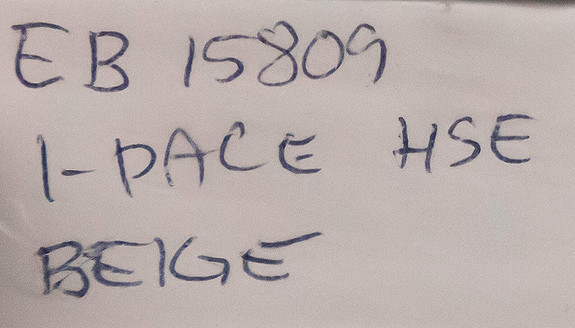 EB 15809
I-PACE HSE
BEIGE